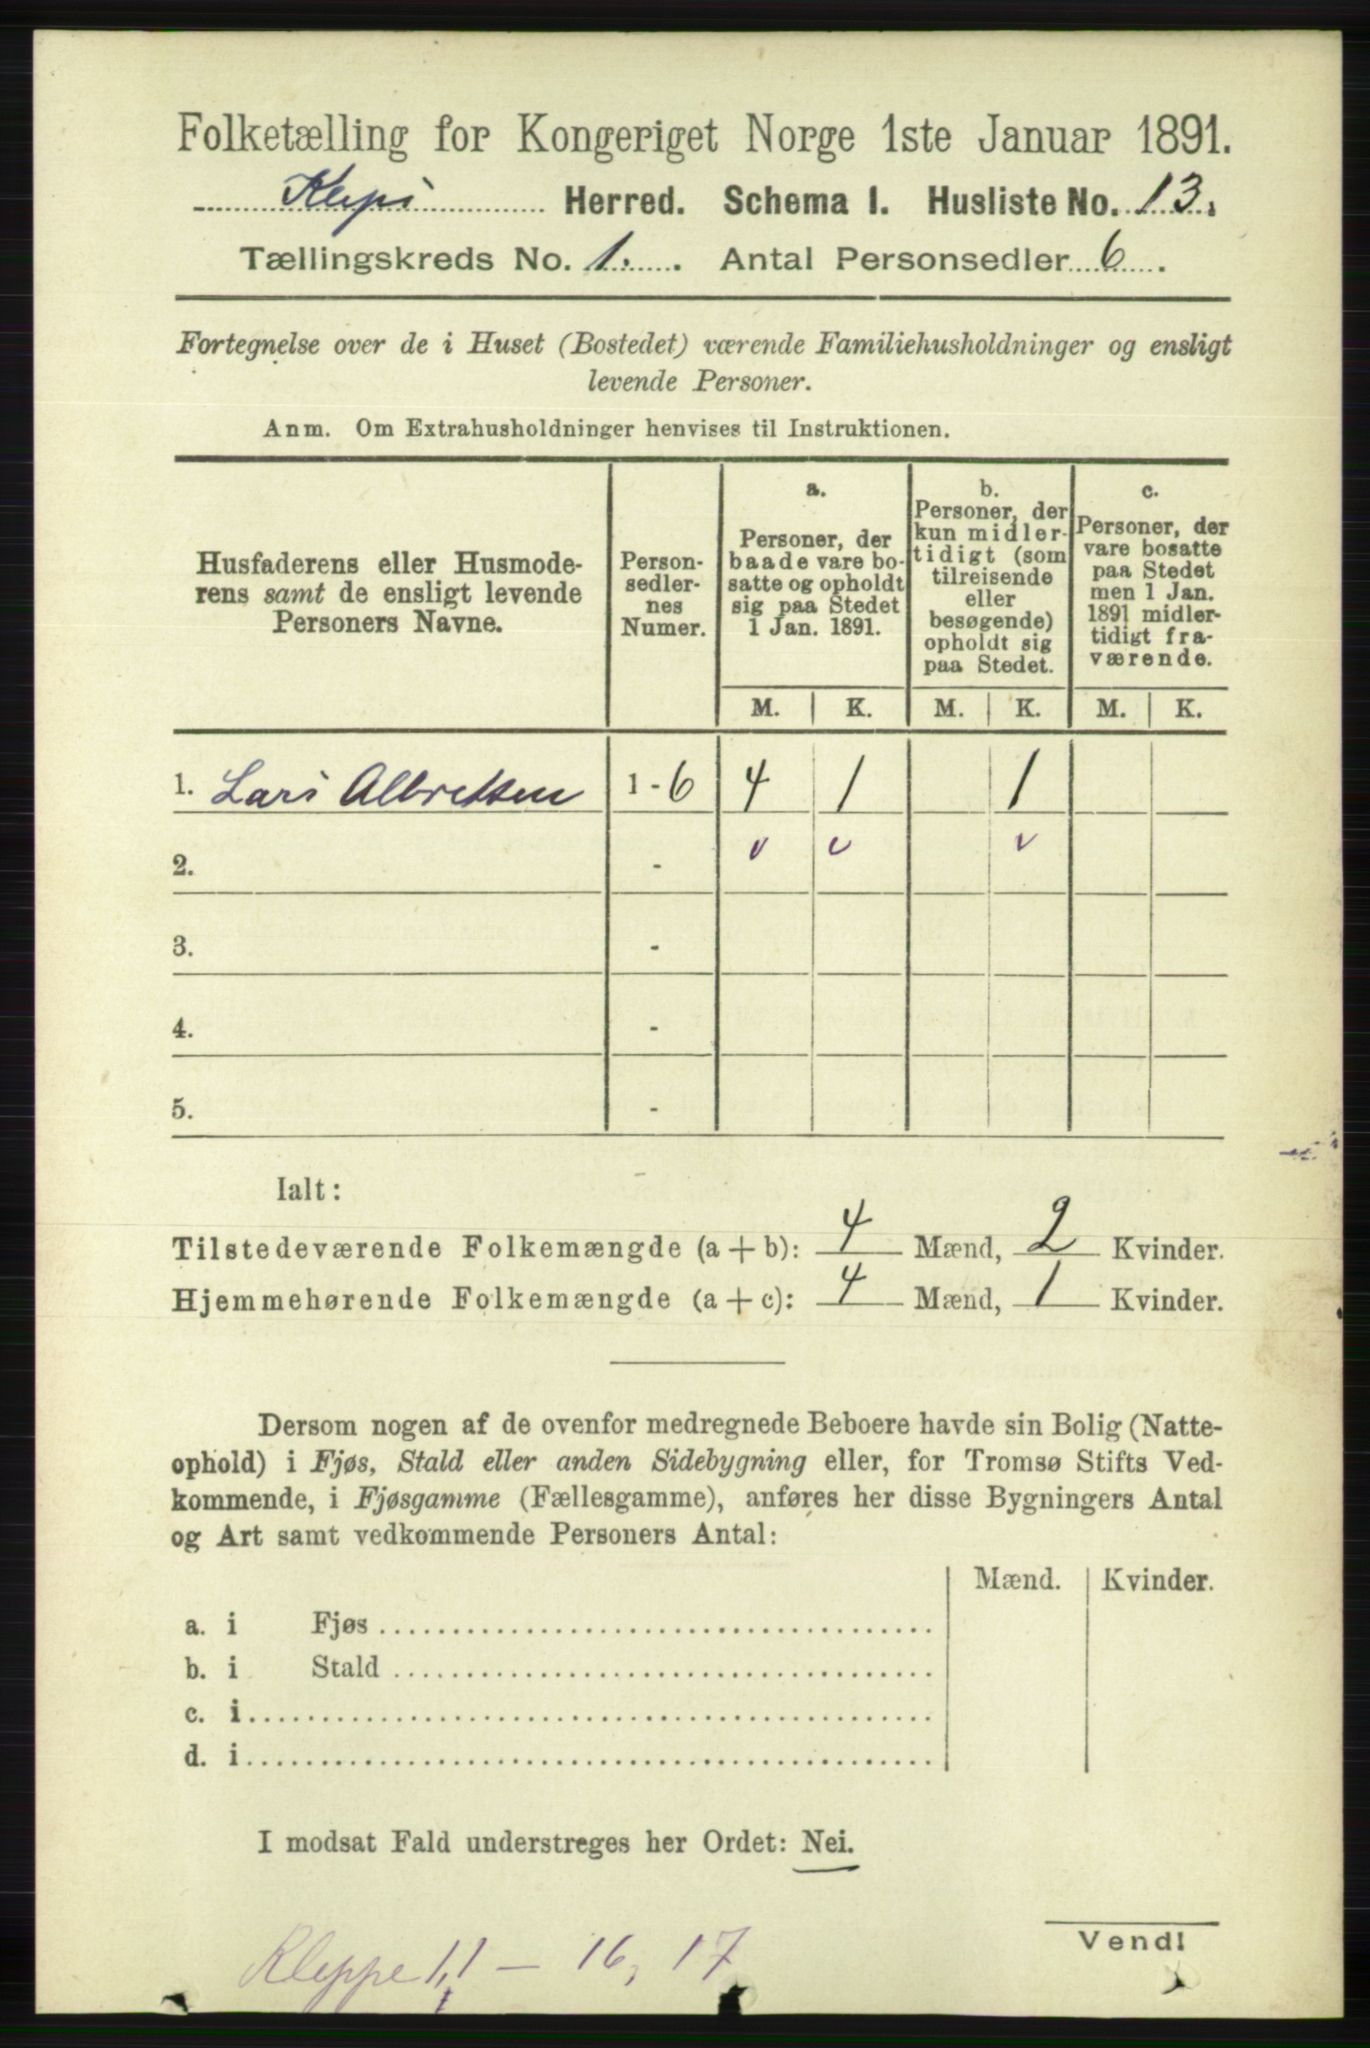 Folketælling for Kongeriget Norge 1ste Januar 1891.
Klepp Herred. Schema I. Husliste No. 13.
Tællingskreds No. 1. Antal Personsedler 6.
Fortegnelse over de i Huset (Bostedet) værende Familiehusholdninger og ensligt
levende Personer.
Anm. Om Extrahusholdninger henvises til Instruktionen.
Husfaderens eller Husmode-
rens samt de ensligt levende
Personers Navne.
Person-
sedler-
nes
Numer.
a.
Personer, der
baade vare bo-
satte og opholdt
sig paa Stedet
1 Jan. 1891.
b.
Personer, der
kun midler-
tidigt (som
tilreisende
eller
besøgende)
opholdt sig
paa Stedet.
c.
Personer, der
vare bosatte
paa Stedet
men 1 Jan.
1891 midler-
tidigt fra-
værende.
M. K. M. K. M. K.
1. Lars Albretsen 1 - 6 4 1 1
2. -
3. -
4. -
5. -
Ialt:
Tilstedeværende Folkemængde (a + b): 4 Mænd, 2 Kvinder.
Hjemmehørende Folkemængde (a + c): 4 Mænd, 1 Kvinder.
Dersom nogen af de ovenfor medregnede Beboere havde sin Bolig (Natte-
ophold) i Fjøs, Stald eller anden Sidebygning eller, for Tromsø Stifts Ved-
kommende, i Fjøsgamme (Fællesgamme), anføres her disse Bygningers Antal
og Art samt vedkommende Personers Antal:
Mænd. Kvinder.
a. i Fjøs
b. i Stald
c. i
d. i
I modsat Fald understreges her Ordet: Nei.
Vend!
Kleppe 1,1 - 16, 17